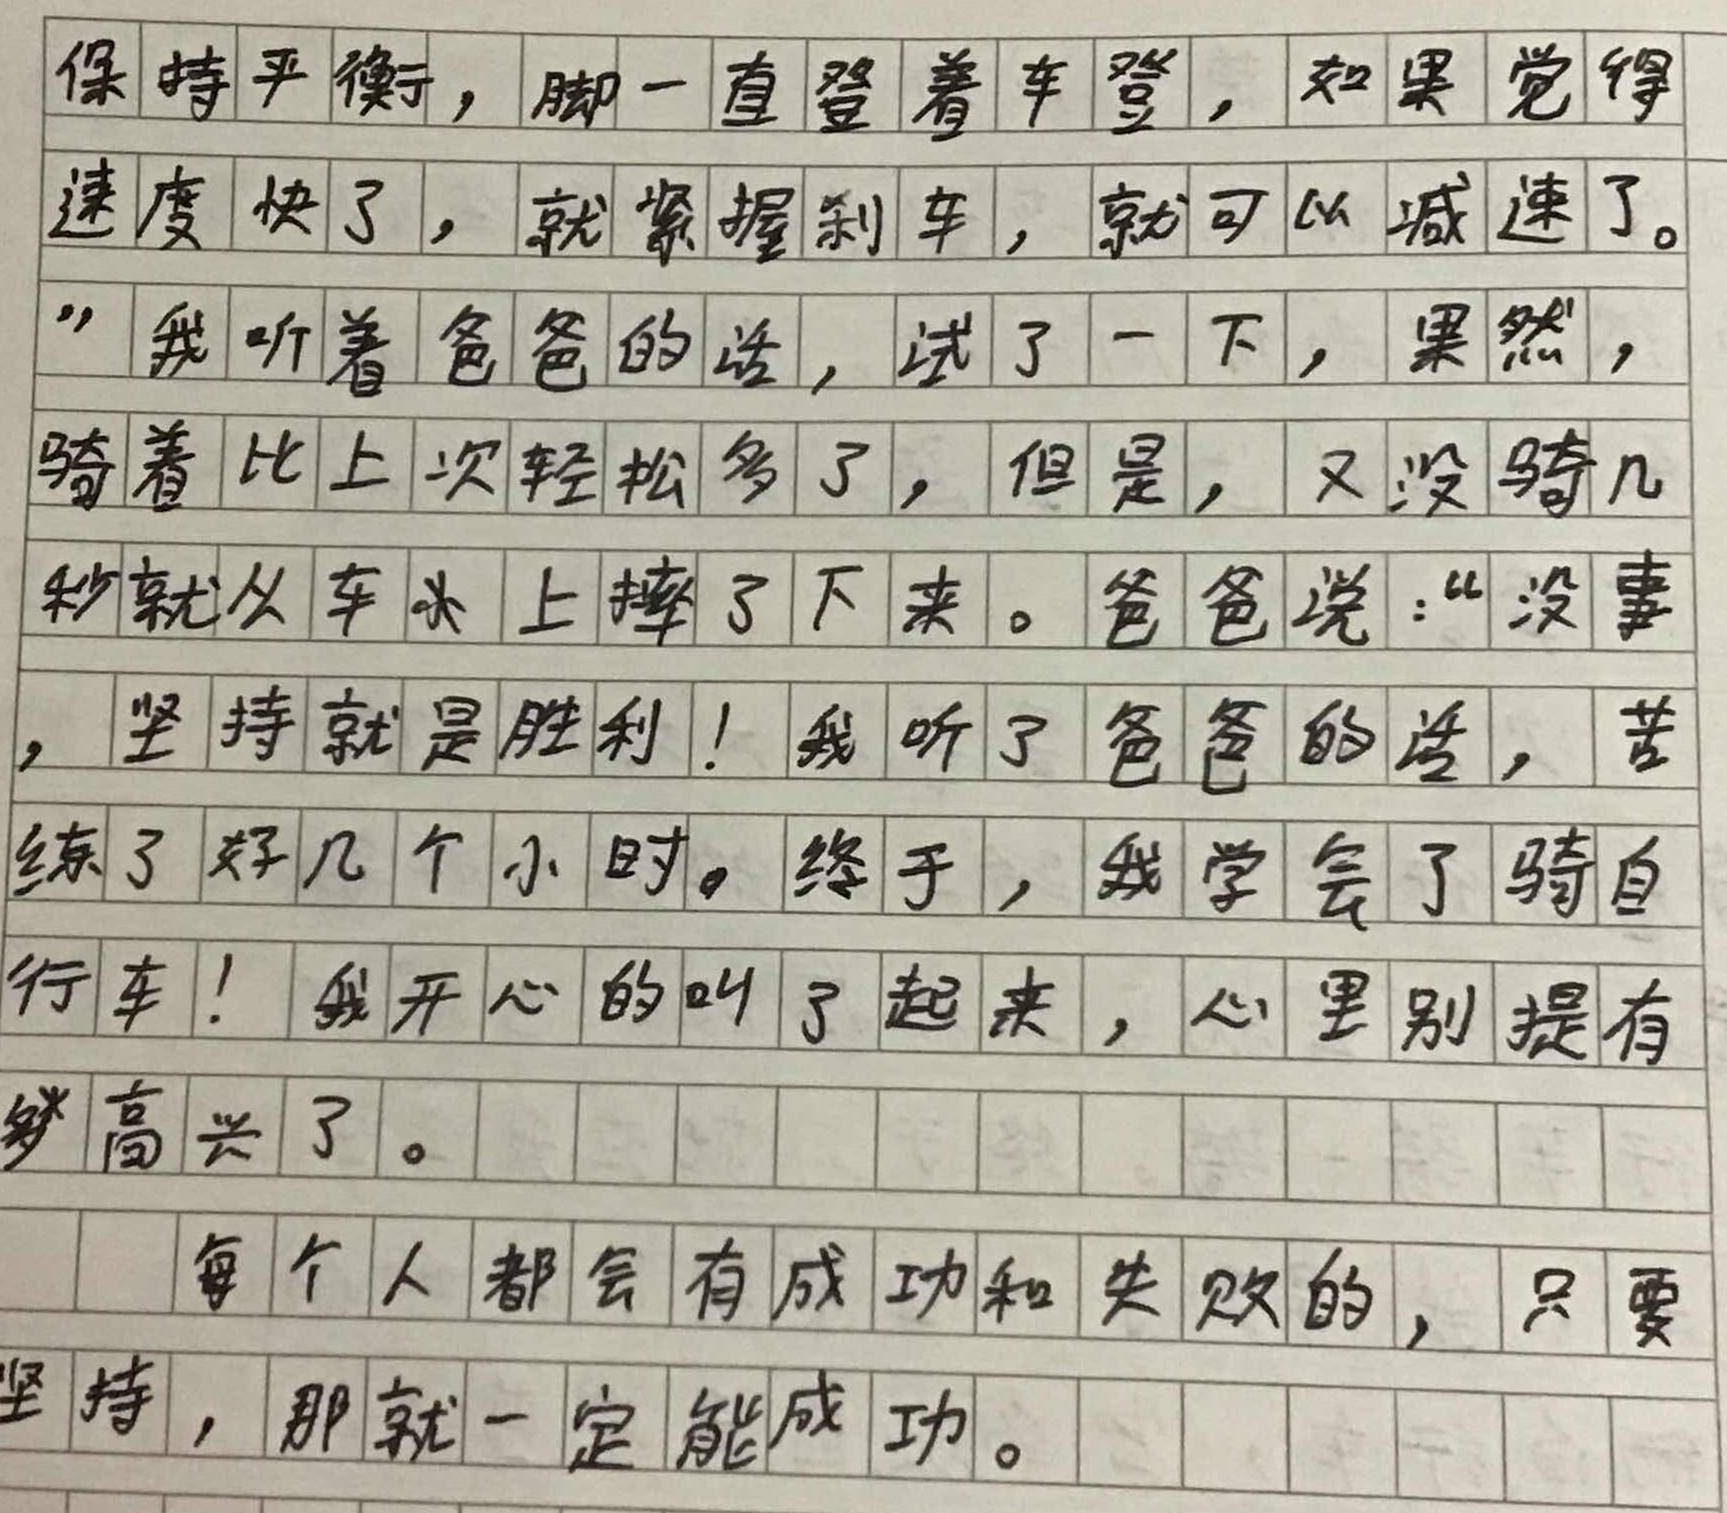 保持平衡，脚一直登着车登，如果觉得
速度快了，就紧握刹车，就可以减速了。
”我听着爸爸的话，试了一下，果然，
骑着比上次轻松多了，但是，又没骑几
秒就从车头上摔了下来。爸爸说：“没事
，坚持就是胜利！我听了爸爸的话，苦
练了好几个小时。终于，我学会了骑自
行车！我开心的叫了起来，心里别提有
多高兴了。
每个人都会有成功和失败的，只要
坚持，那就一定能成功。